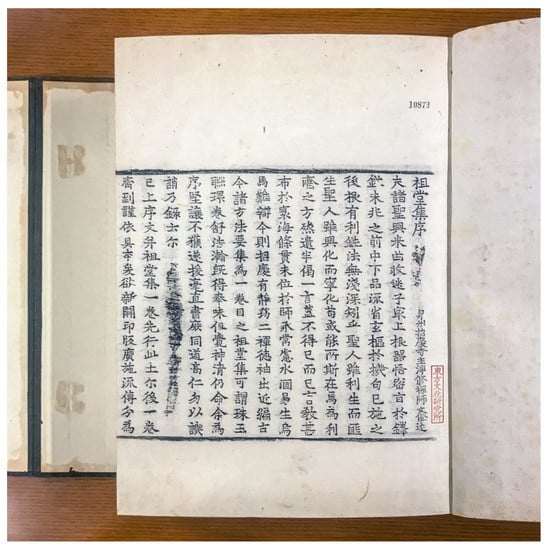 10873
祖堂集序
泉州招慶寺主淨修禪師文僜述
夫諸聖興來曲收迷子最上根器悟密旨於鋒
鋩未兆之前中下品流省玄樞於機句已施之
後根有利鈍法無淺深矧立聖人雖利生而匪
生聖人雖興化而寧化苟或能所斯在焉為利
齊之方然遣半偈一言蓋不得已而已言教甚
布於寰海條貫未位於師承常慮水涸易生烏
馬難辯今則招慶有靜筠二禪德袖出近編古
今諸方法要集為一卷目之祖堂集可謂珠玉
聯環卷舒浩瀚既得奉味但覺神清仍命余為
序堅讓不獲遂援毫直書庶同道高仁勿以譏
誚乃錄云尔
已上序文并祖堂集一卷先行此土尔後一卷
齊到謹依具本爰欲新開印版廣施流傳分為
東方文化研究所